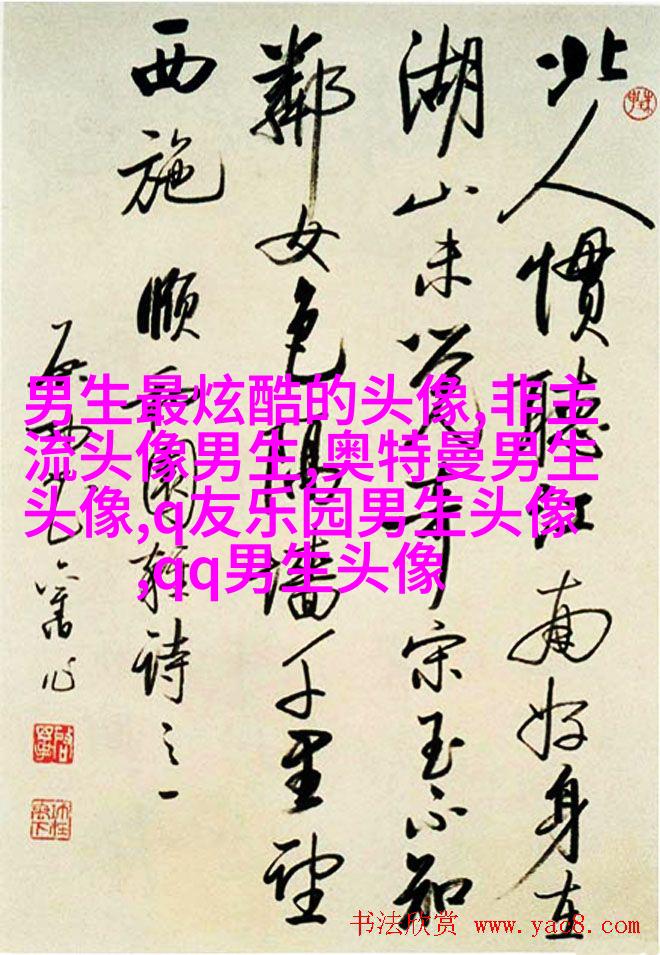 北人慣聽江南好身在
湖山未覺奇宋玉不知
鄰女色隔墻千里望
西施 頤和園雜詩之一
舊作
男生最炫酷的头像,非主
流头像男生,奥特曼男生
头像,q友乐园男生头像
,qq男生头像
书法欣赏 www.yac8.com